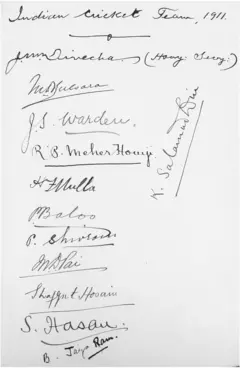 Indian Cricket Team, 1911.
(Hony: Secy:)
J. S. Warden.
R. P. Meher Homji
K. Salamuddin
H F Mulla
P. Baloo
P. Shivram
M D Pai
Shafqat Hosain
S. Hasan.
B. Jaya Ram.